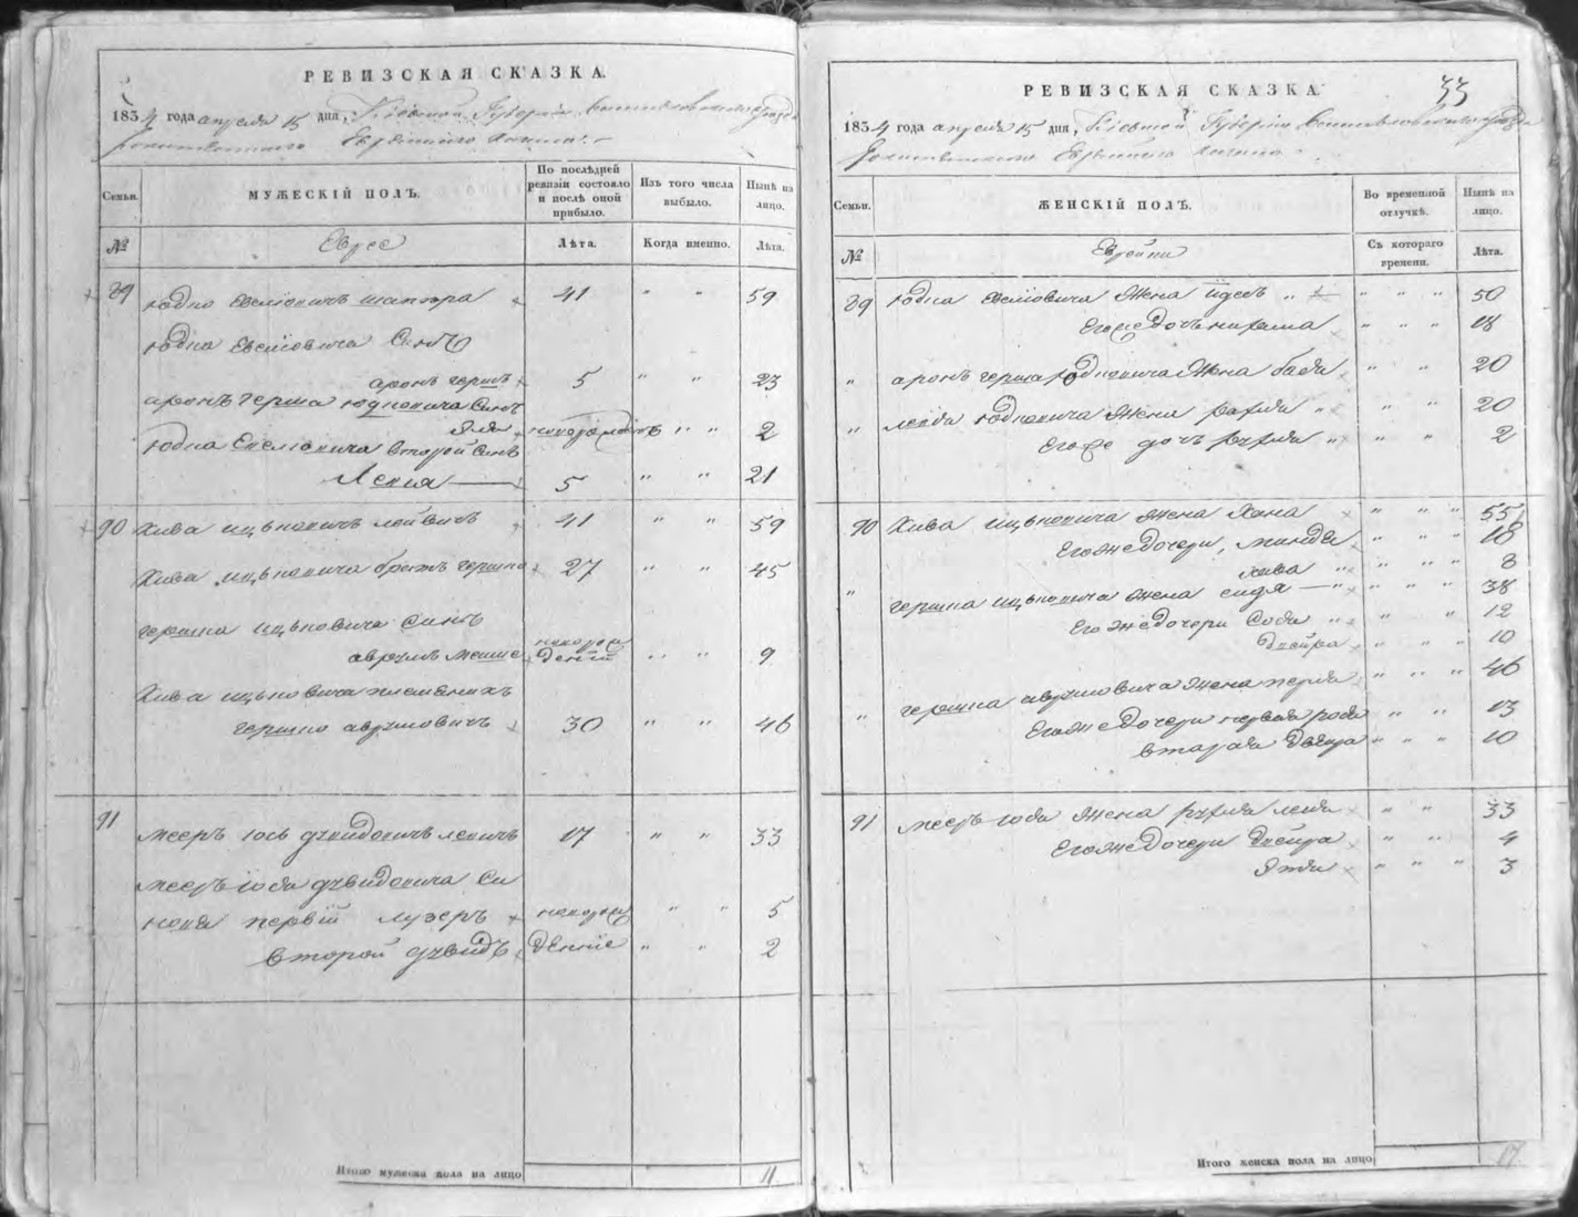 РЕВИЗСКАЯ СКАЗКА.
1834 года апреля 15 дня, Кіевской Губерніи
Еврейского
Семьи.
МУЖЕСКІЙ ПОЛЪ.
По послѣдней ревизіи состояло и послѣ оной прибыло.
Изъ того числа выбыло.
Нынѣ на лицо.
№
Евреи
Лѣта.
Когда именно.
Лѣта.
89 Юдко Евсіовичъ шапира 41 " " 59
Юдка Евсіовича Синъ
аронъ гершъ 5 " " 23
аронъ герша юдковича Синъ
новорожденъ " " 2
Юдка второй Синъ
5 " " 21
90 Кива ицьковичъ лейвичъ 41 " " 59
Кива ицьковича братъ гершко 27 " " 45
гершка ицьковича Синъ
аврумъ мошке новорожденій " " 9
Кива ицьковича племеникъ
гершко аврумовичъ 30 " " 46
91 мееръ іось дувидовичъ левичъ 17 " " 33
мееръ іося дувидовича Си
новя первій лузеръ новорож " " 5
второй дувидъ деніе " " 2
Итого мужеска пола на лицо 11
РЕВИЗСКАЯ СКАЗКА. 33
1834 года апреля 15 дня, Кіевской Губерніи
Еврейского
Семьи.
ЖЕНСКІЙ ПОЛЪ.
Во временной отлучкѣ.
Нынѣ на лицо.
№
Еврейки
Съ котораго времени.
Лѣта.
89 Юдка Евсіовича Жена " " " 50
Егоже дочь " " " 18
" аронъ герша юдковича Жена бася " " 20
" лейба юдковича Жена рахля " " 20
Егоже дочь рухля " " 2
90 Кива ицьковича Жена Хана " " " 55
Егоже дочери, миндля " " " 18
хива " " " 8
" гершка ицьковича жена сидя " " " 38
Его же дочери Содя " " 12
Двейра " " 10
" гершка аврумовича Жена перля " " " 46
Егоже дочери первая рося " " 13
вторая Двейра " " " 10
91 мееръ іося Жена рухля лея " " 33
Егоже дочери Двейра " " 4
" " " 3
Итого женска пола на лицо 17